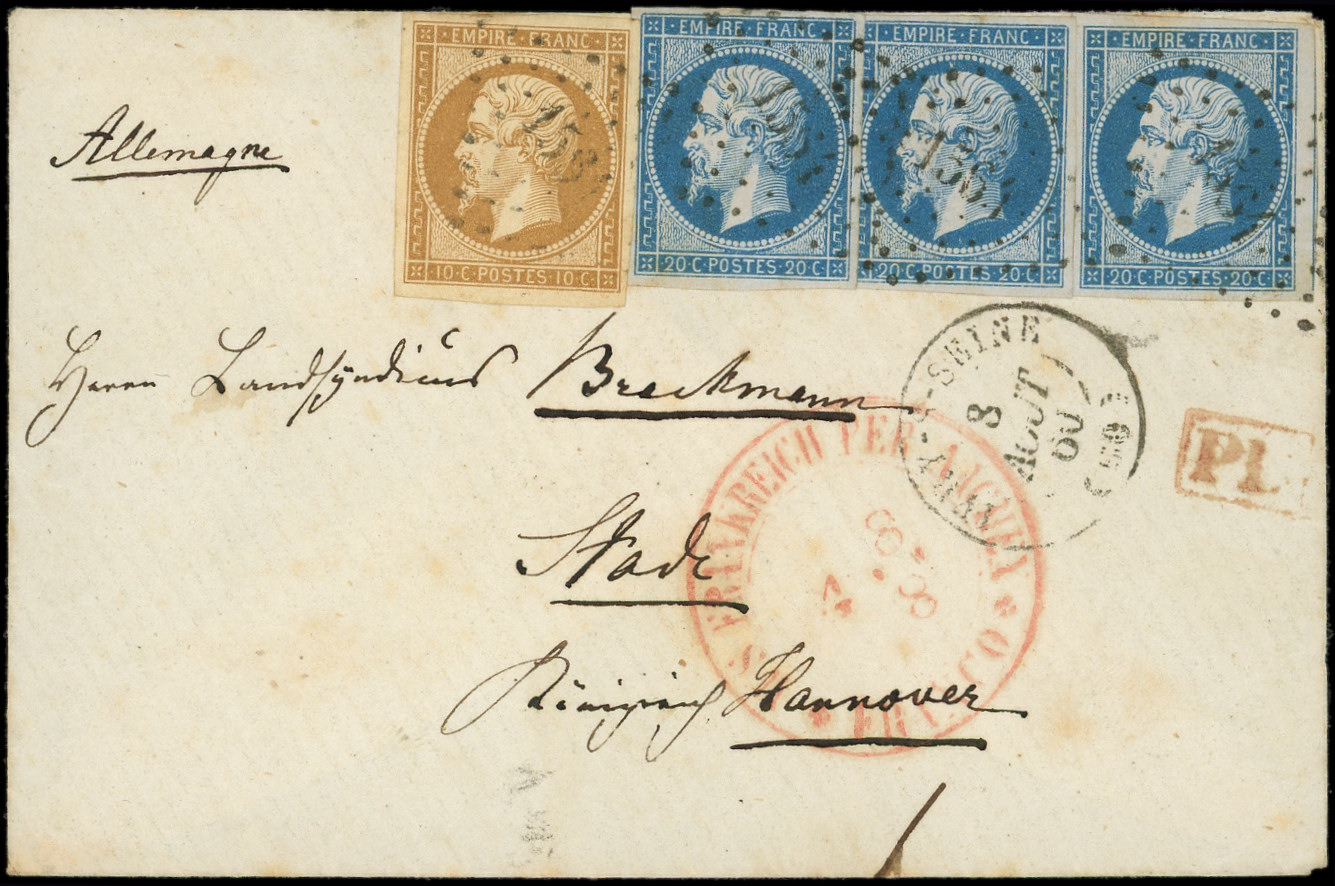 EMPIRE · FRANC · EMPIRE · FRANC · EMPIRE · FRANC · EMPIRE · FRANC ·
10 · C · POSTES · 10 · C · 20 · C · POSTES · 20 · C · 20 · C · POSTES · 20 · C · 20 · C · POSTES · 20 · C ·
Allemagne
Herrn Landsyndicus Brackmann
Stade
Königreich Hannover
SEINE
8
AOUT
60
(60)
FRANKREICH PER AACHEN * FRANCO *